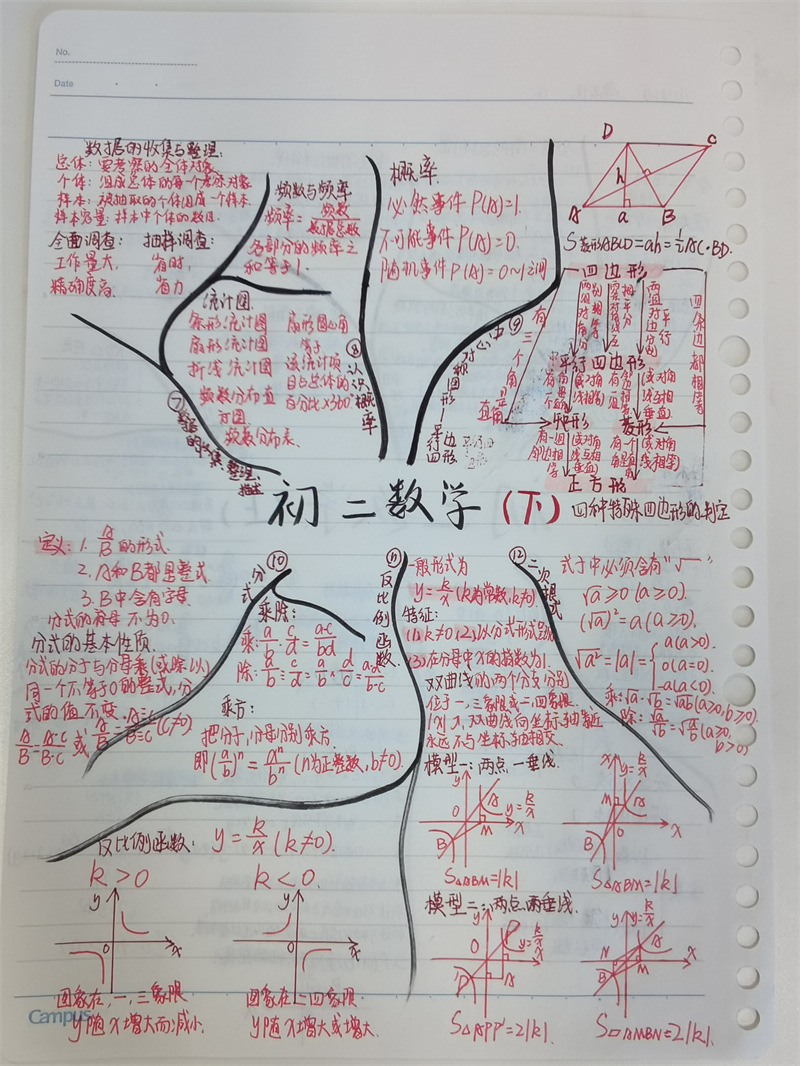 No.
Date
数据的收集与整理:
总体: 要考察的全体对象
个体: 组成总体的每一个考察对象
样本: 被抽取的个体组成一个样本
样本容量: 样本中个体的数目
全面调查: 抽样调查:
工作量大, 省时,
精确度高. 省力
频数与频率
频率=频数/数据总数
各部分的频率之
和等于1.
统计图.
条形统计图
扇形统计图
折线统计图
频数分布直
方图
频数分布表.
扇形圆心角
等于
该统计项
目占总体的
百分比×360°
⑦数据的收集、整理、描述
概率.
必然事件 P(A)=1.
不可能事件 P(A)=0.
随机事件 P(A)=0~1之间
⑧认识概率
D C
h
A a B
S菱形ABCD=ah=½AC·BD.
⑨中心对称图形—平行四边形
四边形
有三个角是直角
两组对边平行
四条边都相等
平行四边形
矩形
菱形
有一组邻边相等
(或对角线互相垂直)
(或对角线相等)
正方形
四种特殊四边形的判定
初二数学(下)
定义: 1. A/B的形式.
2. A和B都是整式.
3. B中含有字母.
分式的分母不为0.
分式的基本性质.
分式的分子与分母乘(或除以)
同一个不等于0的整式,分
式的值不变.
A/B=A·C/B·C 或 A/B=A÷C/B÷C (C≠0)
⑩分式
乘除:
乘: a/b·c/d=ac/bd
除: a/b÷c/d=a/b·d/c=ad/b·c
乘方:
把分子,分母分别乘方.
即(a/b)ⁿ=aⁿ/bⁿ(n为正整数,b≠0).
⑪反比例函数.
一般形式为
y=k/x(k为常数,k≠0).
特征:
(1)k≠0 (2)以分式形式呈现
(3)在分母中x的指数为1.
双曲线的两个分支分别
位于一、三象限或二、四象限.
双曲线向坐标轴靠近
永远不与坐标轴相交.
模型一:两点一垂线.
y y=k/x
A
O M x
B
S△ABM=|k|
y=k/x
M A
O x
B
S△ABM=|k|
模型二:两点两垂线.
y y=k/x
x
S△APP'=2|k|.
y y=k/x
N A
B M x
S▱AMBN=2|k|.
⑫二次根式
式子中必须含有"√"
√a≥0(a≥0).
(√a)²=a(a≥0).
√a²=|a|={a(a>0). 0(a=0). -a(a<0).
乘:√a·√b=√ab(a≥0,b≥0).
除:√a/√b=√a/b(a≥0, b>0)
反比例函数: y=k/x(k≠0).
k>0 k<0.
y y
O x O x
图象在,一,三象限 图象在二四象限
y随x增大而减小. y随x增大或增大.
Campus